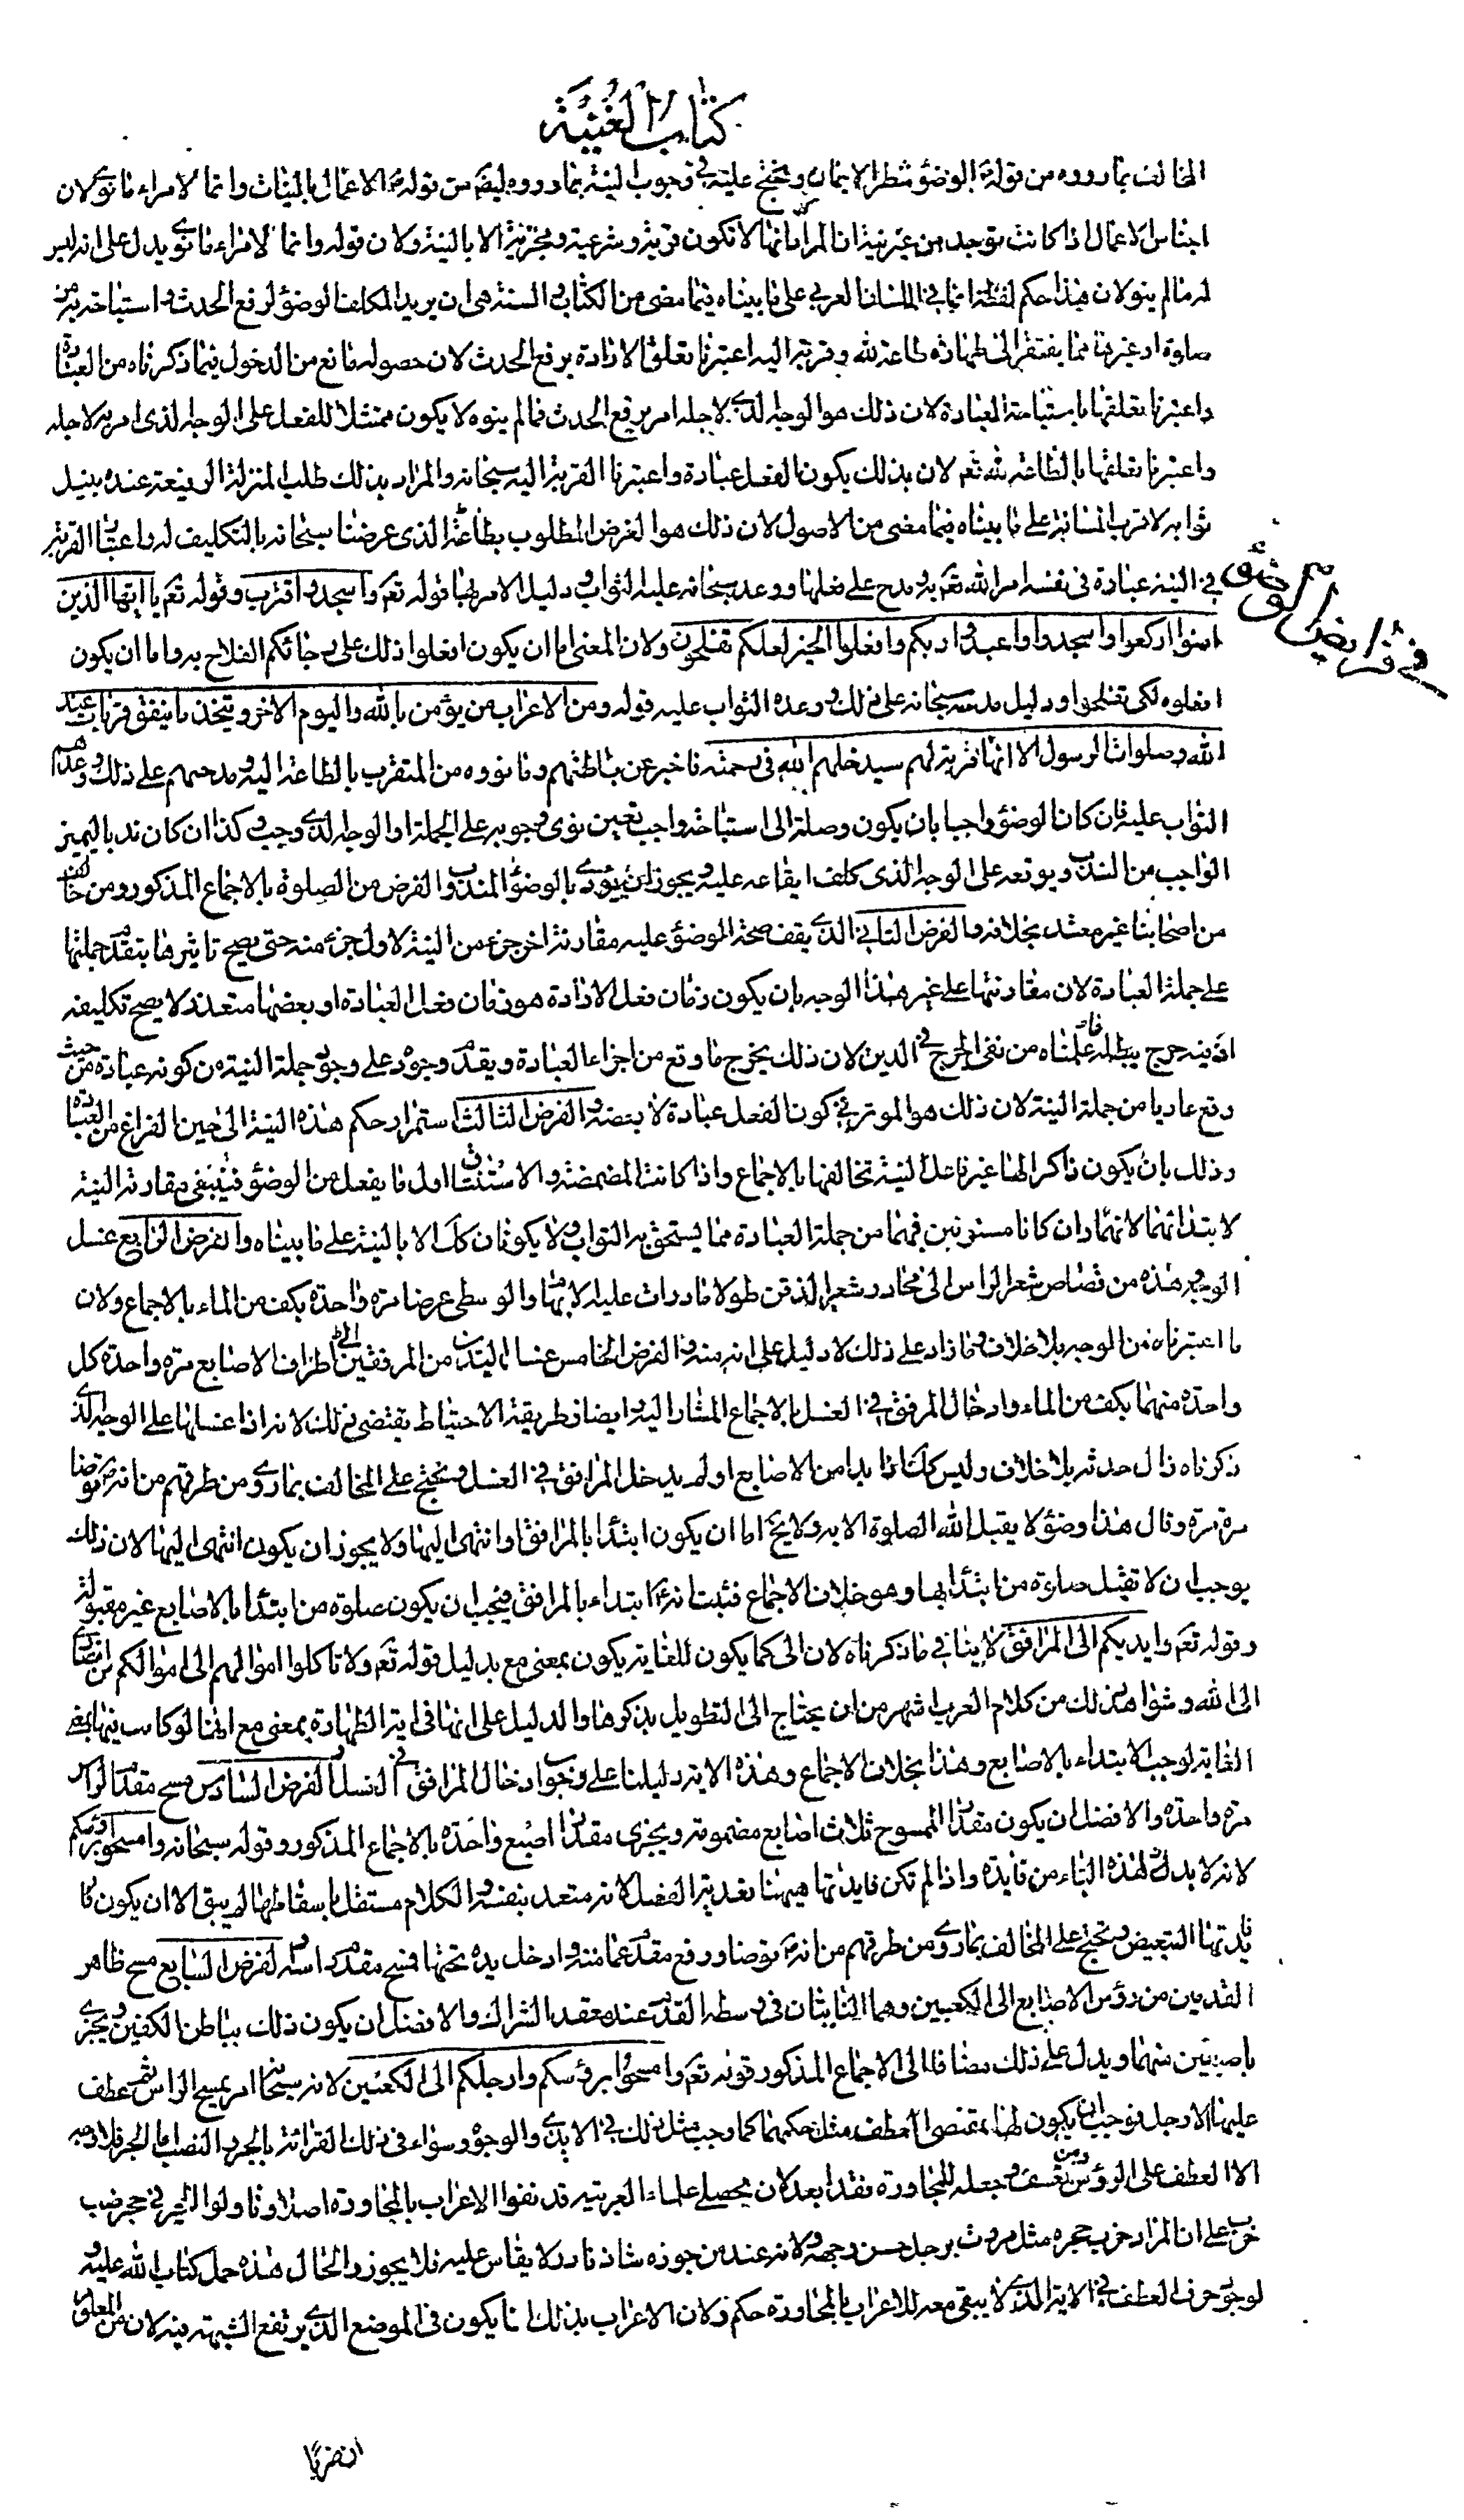 كتاب الغنية
المخالف بما رووه من قوله ع الوضوء شطر الايمان ويحتج عليه في وجوب النية بما رووه ايضا من قوله ع الاعمال بالنيات وانما لامرء ما نوى لان
اجناس الاعمال اذا كانت توجد من غير نية ان المراد انها لا تكون قربة وشرعية ومجزية الا بالنية ولان قوله وانما لامرء ما نوى يدل على انه ليس
له ما لم ينو لان هذا حكم لفظة انما في اللسان العربي على ما بيناه فيما مضى من الكتاب والسنة هى ان يريد المكلف الوضوء لرفع الحدث و استباحة به من
صلوة او غيرها مما يفتقر الى طهارة طاعة لله وقربة اليه اعتبرنا تعلق الارادة برفع الحدث لان حصوله مانع من الدخول فيما ذكرناه من العبادة
واعتبرنا تعلقها باستباحة العبادة لان ذلك هو الوجه الذى لاجله امر برفع الحدث فما لم ينوه لا يكون ممتثلا للفعل على الوجه الذى امر به لاجله
واعتبرنا تعلقها بالطاعة لله تعم لان بذلك يكون الفعل عبادة واعتبرنا القربة اليه سبحانه والمراد بذلك طلب المنزلة الرفيعة عنده بنيل
ثوابه لا قرب المسافة على ما بيناه فيما مضى من الاصول لان ذلك هو الغرض المطلوب بطاعته الذى عرضنا سبحانه بالتكليف له واعتبار القربة
في النية عبادة فى نفسه امر الله تعم به ومدح على فعلها ووعد سبحانه عليه الثواب ودليل الامر بها قوله تعم واسجد واقترب وقوله تعم يا ايها الذين
امنوا اركعوا واسجدوا واعبدوا ربكم وافعلوا الخير لعلكم تفلحون ولان المعنى اما ان يكون افعلوا ذلك على رجائكم الفلاح به واما ان يكون
افعلوه لكى تفلحوا ودليل مدحه سبحانه على ذلك ووعده الثواب عليه قوله ومن الاعراب من يؤمن بالله واليوم الاخر ويتخذ ما ينفق قربات عند
الله وصلوات الرسول الا انها قربة لهم سيدخلهم الله فى رحمته فاخبر عن باطنهم وما نووه من التقرب بالطاعة اليه ومدحهم على ذلك ووعدهم
الثواب عليه فان كان الوضوء واجبا بان يكون وصلة الى استباحة واجب تعين نوى وجوبه على الجملة او الوجه الذى وجب وكذا ان كان ندبا ليميز
الواجب من الندب ويوقعه على الوجه الذى كلف ايقاعه عليه ويجوز ان يؤدى بالوضوء المندوب الفرض من الصلوة بالاجماع المذكور ومن خالف
من اصحابنا غير معتد بخلافه والفرض الثانى الذى يقف صحة الوضوء عليه مقارنة اخر جزء من النية لاول جزء منه حتى يصح تاثيرها بتقدم جملتها
على جملة العبادة لان مقارنتها على غير هذا الوجه بان يكون زمان فعل الارادة هو زمان فعل العبادة او بعضها متعذر لا يصح تكليفه
او فيه حرج يبطله ما علمناه من نفى الحرج فى الدين لان ذلك يخرج ما وقع من اجزاء العبادة ويقدم وجوده على وجود جملة النية من كونه عبادة من حيث
وقع عاريا من جملة النية لان ذلك هو الموثر فى كون الفعل عبادة لا بعضه والفرض الثالث استمرار حكم هذه النية الى حين الفراغ من العبادة
وذلك بان يكون ذاكرا لها غير فاعل لنية تخالفها بالاجماع واذا كانت المضمضة والاستنشاق اول ما يفعل من الوضوء فينبغى مقارنة النية
لابتدائهما لانهما وان كانا مسنونين فهما من جملة العبادة مما يستحق به الثواب ولا يكونان كذلك الا بالنية على ما بيناه والفرض الرابع غسل
الوجه وهذه من قصاص شعر الراس الى محادر شعر الذقن طولا وما دارت عليه الابهام والوسطى عرضا مرة واحدة بكف من الماء بالاجماع ولان
ما اعتبرناه من الوجه بلا خلاف وما زاد على ذلك لا دليل على انه منه والفرض الخامس غسل اليدين من المرفقين الى اطراف الاصابع مرة واحدة كل
واحدة منهما بكف من الماء وادخال المرفق فى الغسل بالاجماع المشار اليه وايضا فطريقة الاحتياط يقتضى ذلك لانه اذا غسلها على الوجه الذى
ذكرناه زال حدثه بلا خلاف وليس كذلك اذا بدا من الاصابع او لم يدخل المرافق فى الغسل ويحتج على المخالف بما روى من طرقهم من انه ع توضا
مرة مرة وقال هذا وضوء لا يقبل الله الصلوة الا به ولا يخ اما ان يكون ابتدا بالمرافق او انتهى اليها ولا يجوز ان يكون انتهى اليها لان ذلك
يوجب ان لا تقبل صلوة من ابتدا بها وهو خلاف الاجماع فثبت انه ع ابتداء بالمرافق فيجب ان يكون صلوة من ابتدا بالاصابع غير مقبولة
وقوله تعم وايديكم الى المرافق لا ينافى ما ذكرناه لان الى كما يكون للغاية يكون بمعنى مع بدليل قوله تعم ولا تاكلوا اموالهم الى اموالكم من انصارى
الى الله وشواهد ذلك من كلام العرب اشهر من ان يحتاج الى التطويل بذكرها والدليل على انها فى اية الطهارة بمعنى مع انها لو كانت فيها بمعنى
الغاية لوجب الابتداء بالاصابع وهذا بخلاف الاجماع وهذه الاية دليلنا على وجوب ادخال المرافق فى الغسل والفرض السادس مسح مقدم الراس
مرة واحدة والافضل ان يكون مقدار الممسوح ثلاث اصابع مضمومة ويجزى مقدار اصبع واحدة بالاجماع المذكور وقوله سبحانه وامسحوا برؤسكم
لانه لا بد لهذه الباء من فايدة واذا لم تكن فايدتها هيهنا تعدية الفعل لانه متعد بنفسه والكلام مستقل باسقاطها لم يبق الا ان يكون فا
يدتها التبعيض ويحتج على المخالف بما روى من طرقهم من انه ع توضا ورفع مقدم عمامته وادخل يده تحتها فمسح مقدم راسه والفرض السابع مسح ظاهر
القدمين من رؤس الاصابع الى الكعبين وهما النابتان فى وسط القدم عند معقد الشراك والافضل ان يكون ذلك بباطن الكفين ويجزى
باصبعين منهما ويدل على ذلك مضافا الى الاجماع المذكور قوله تعم وامسحوا برؤسكم وارجلكم الى الكعبين لانه سبحانه امر بمسح الراس ثم عطف
عليها الارجل فوجب ان يكون لها بمقتضى العطف مثل حكمهما كما وجب مثل ذلك فى الايدى والوجوه وسواء فى ذلك القرائة بالجر والنصب اما الجر فلا وجه
الا العطف على الرؤس ومن تعسف وجعله للمجاورة فقد ابعد لان محصلى علماء العربية قد نفوا الاعراب بالمجاورة اصلا وتاولوا الجر فى جحر ضب
خرب على ان المراد خرب جحره مثل مررت برجل حسن وجهه ولانه عند من جوزه شاذ نادر لا يقاس عليه فلا يجوز والحال هذه حمل كتاب الله عليه و
لوجود حرف العطف فى الاية الذى لا يبقى معه للاعراب بالمجاورة حكم ولان الاعراب بذلك انما يكون فى الموضع الذى يرتفع الشبهة فيه لان من المعلوم
فى فرايض الوضوء